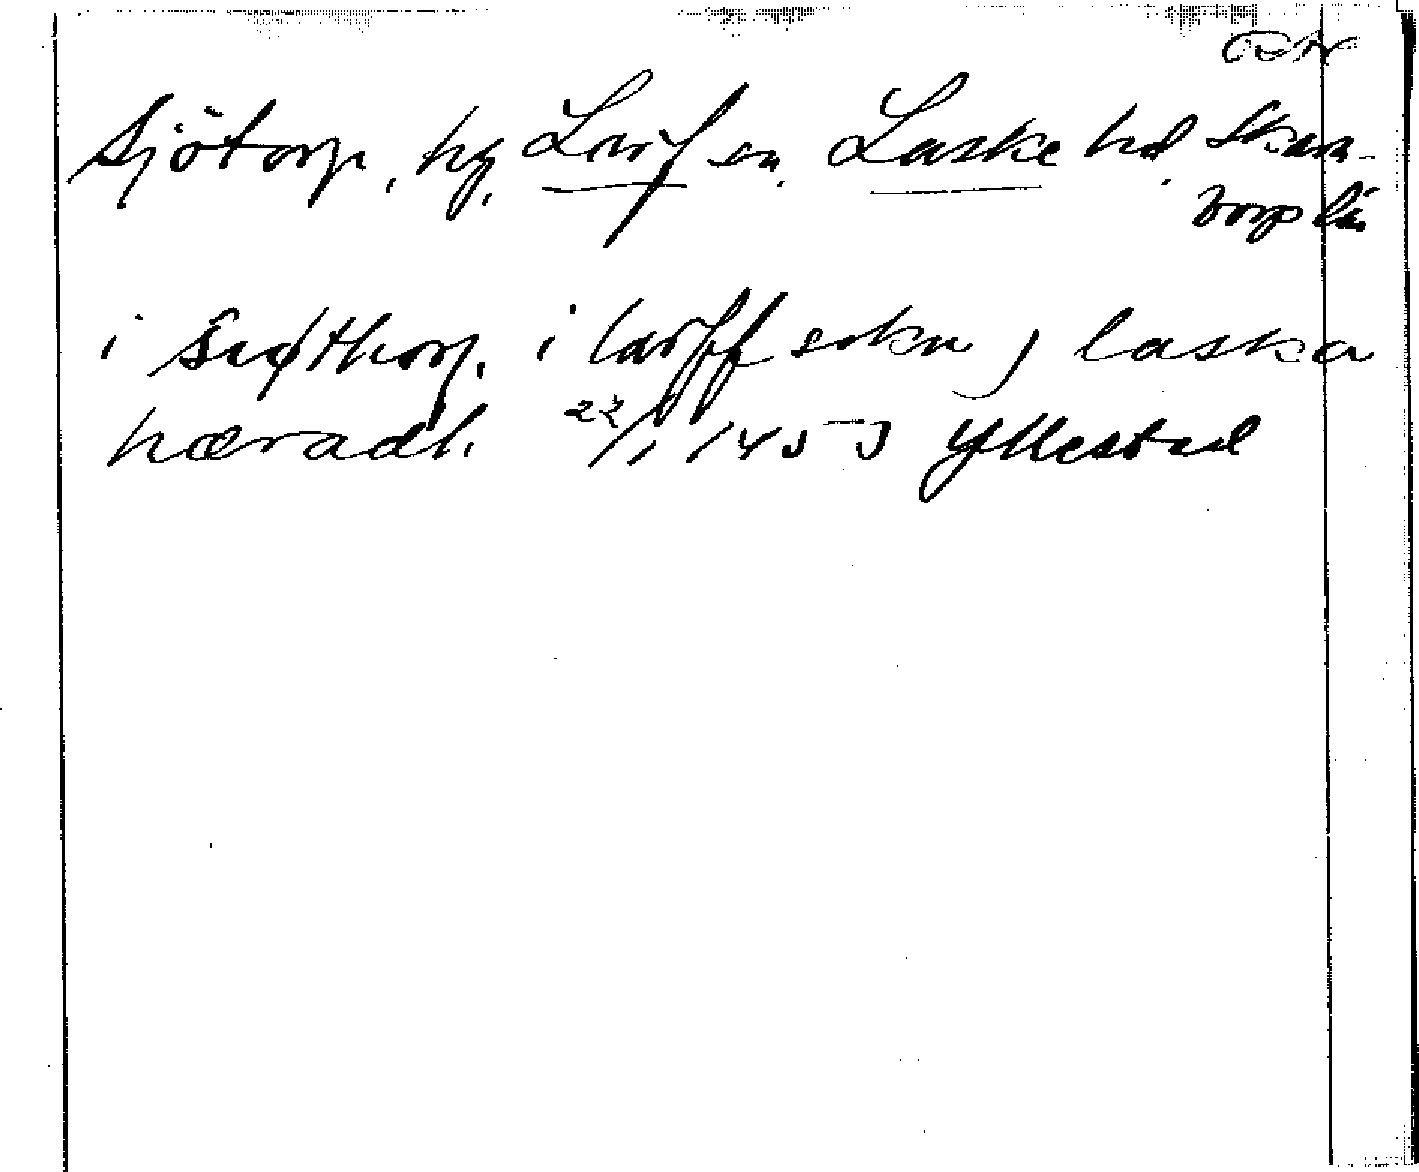 Sjötorp, hg, Larf sn. Laske hd. Skara-
borgs län
i siøthorp. i larff sokn j laska
hæradh 22/1 1453 Yllestad